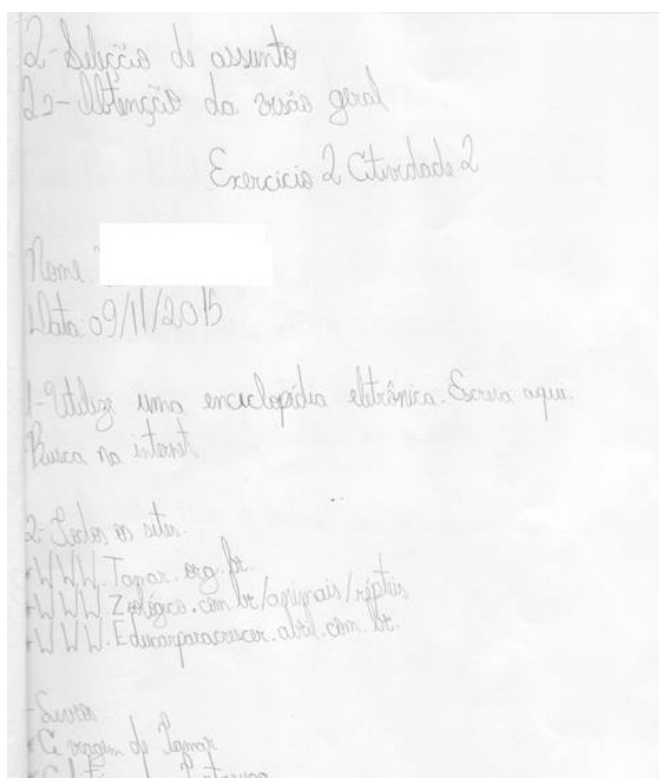 2- Seleção de assunto
2.2- Obtenção da visão geral
Exercicio 2 Atividade 2
Nome
Data 09/11/2015
1-Utilize uma enciclopédia eletrônica. Escreva aqui.
Busca na internet
2- Todos os sites.
+WWW.Tamar.org.br
+WWW.Zoológico.com.br/animais/répteis
+WWW.Educarparacrescer.abril.com.br.
- Livros
* A viagem de Tamar